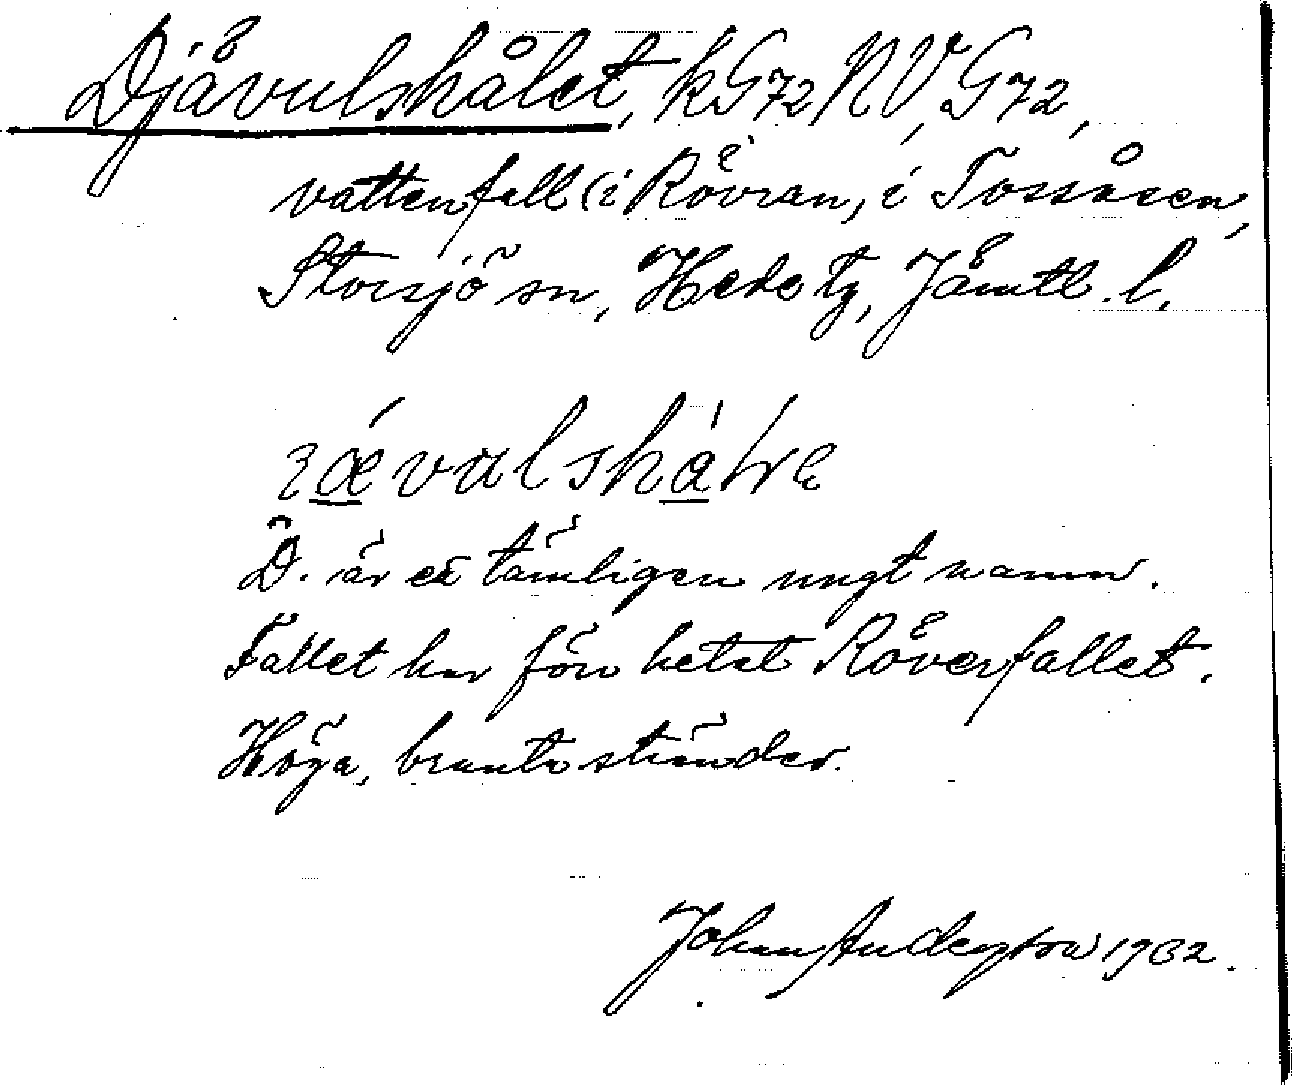 Djävulshålet, kG72NV, G72,
vattenfall (i Rövran, i Tossåsen,
Storsjö sn, Hede tg, Jämtl. l.
D. är ett tämligen ungt namn.
Fallet har förr hetat Röverfallet.
Höga, branta stränder.
Johan Andersson 1932.